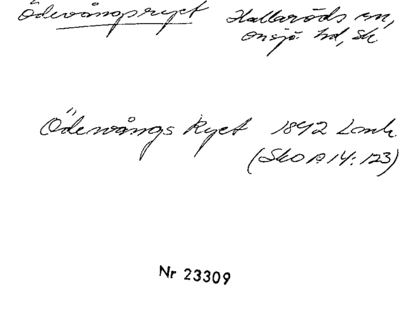 Ödevångsryet Hallaröds sn,
Onsjö hd, Sk
Ödewångs Ryet 1842 Lmk
(Sko A 14:123)
Nr 23309